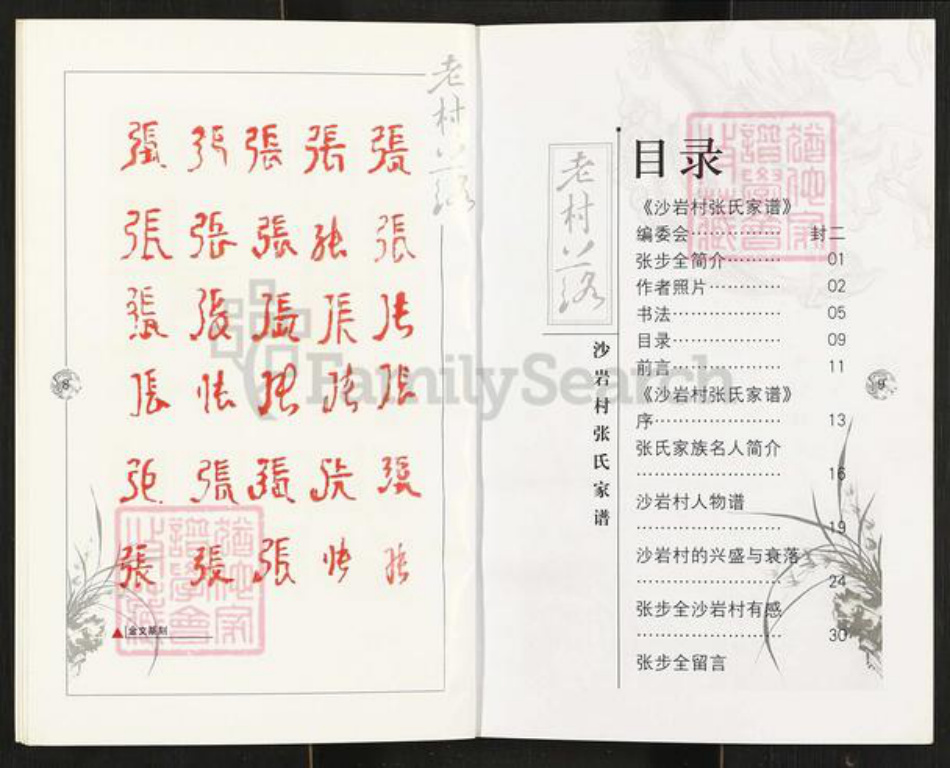 張 張 張 張 張
張 張 張 張 張
張 張 張 張 張
張 張 張 張 張
張 張 張 張 張
張 張 張 張 張
金文篆刻
8
老村落
FamilySearch
老村落
沙岩村张氏家谱
目录
《沙岩村张氏家谱》
编委会………… 封二
张步全简介……… 01
作者照片………… 02
书法……………… 05
目录……………… 09
前言……………… 11
《沙岩村张氏家谱》
序………………… 13
张氏家族名人简介
…………………… 16
沙岩村人物谱
…………………… 19
沙岩村的兴盛与衰落
…………………… 24
张步全沙岩村有感
…………………… 30
张步全留言
9